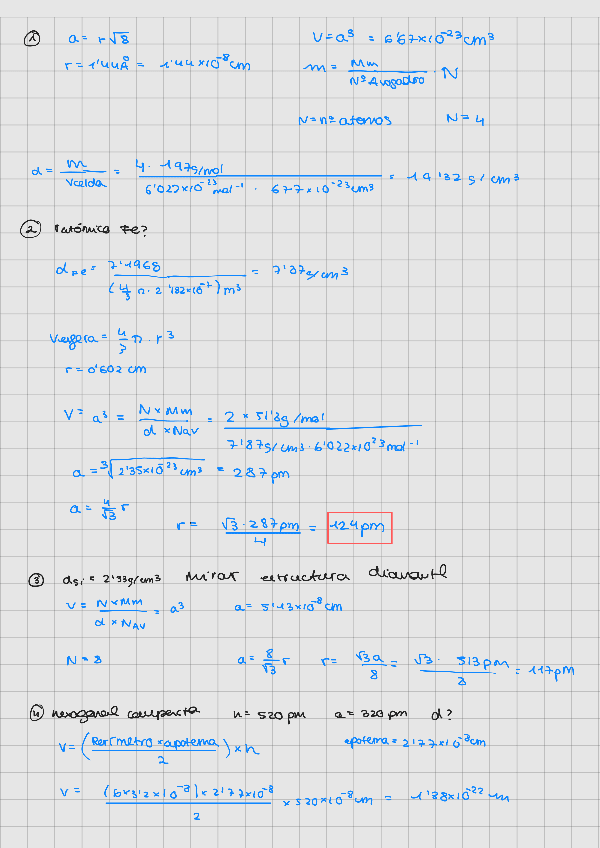 1 a = r√8 V = a³ = 6'67×10⁻²³ cm³
r = 1'44Å = 1'44×10⁻⁸ cm m = Mm / Nº Avogadro · N
N = nº atomos N = 4
d = m / Vcelda = 4 · 197g/mol / 6'022×10⁻²³ mol⁻¹ · 6'77×10⁻²³ cm³ = 19'32 g/cm³
2 ratómico Fe?
dFe = 7'1968 / (4/3 π · 2'182×10⁻⁷) m³ = 7'87g/cm³
Vesfera = 4/3 π · r³
r = 0'602 cm
V = a³ = N × Mm / d × NAV = 2 × 51'8g/mol / 7'87g/cm³ · 6'022×10²³ mol⁻¹
a = ³√2'35×10⁻²³ cm³ = 287 pm
a = 4/√3 r
r = √3 · 287 pm / 4 = 124 pm
3 dsi = 2'33g/cm³ Mirar estructura diamante
V = N × Mm / d × NAV = a³ a = 5'43×10⁻⁸ cm
N = 8 a = 8/√3 r r = √3 a / 8 = √3 · 543 pm / 8 = 117 pm
4 hexagonal compacta h = 520 pm a = 320 pm d?
V = (Perímetro × apotema / 2) × h apotema = 2'77×10⁻⁸ cm
V = (6×3'2×10⁻⁸) × 2'77×10⁻⁸ / 2 × 520×10⁻⁸ cm = 1'38×10⁻²² m